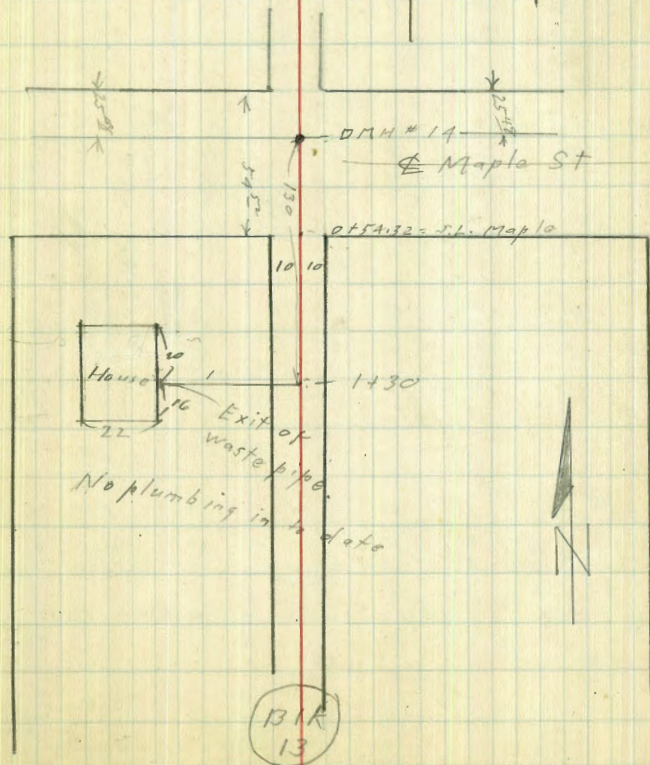 25 48
25 48
DMH # 14
₵ Maple St
130
0+54.32 = S.L. Maple
10 10
20
House
1
1+30
16
22
Exit of
waste pipe.
No plumbing in to date
N
Blk
13